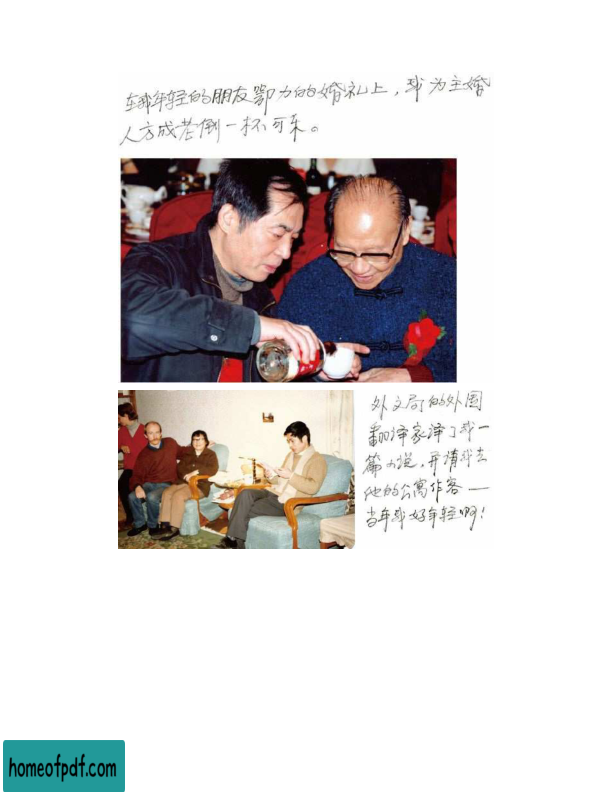 在我年轻的朋友鄂力的婚礼上，我为主婚
人方成老倒一杯可乐。
外文局的外国
翻译家译了我一
篇小说，并请我去
他的公寓作客——
当年我好年轻啊！
homeofpdf.com